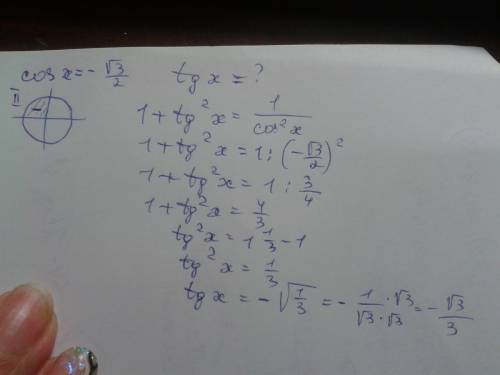 cos x = - √3/2   tg x = ?
II
1 + tg²x = 1/cos²x
1 + tg²x = 1 : (-√3/2)²
1 + tg²x = 1 : 3/4
1 + tg²x = 4/3
tg²x = 1 1/3 - 1
tg²x = 1/3
tg x = - √(1/3) = - 1·√3/√3·√3 = - √3/3